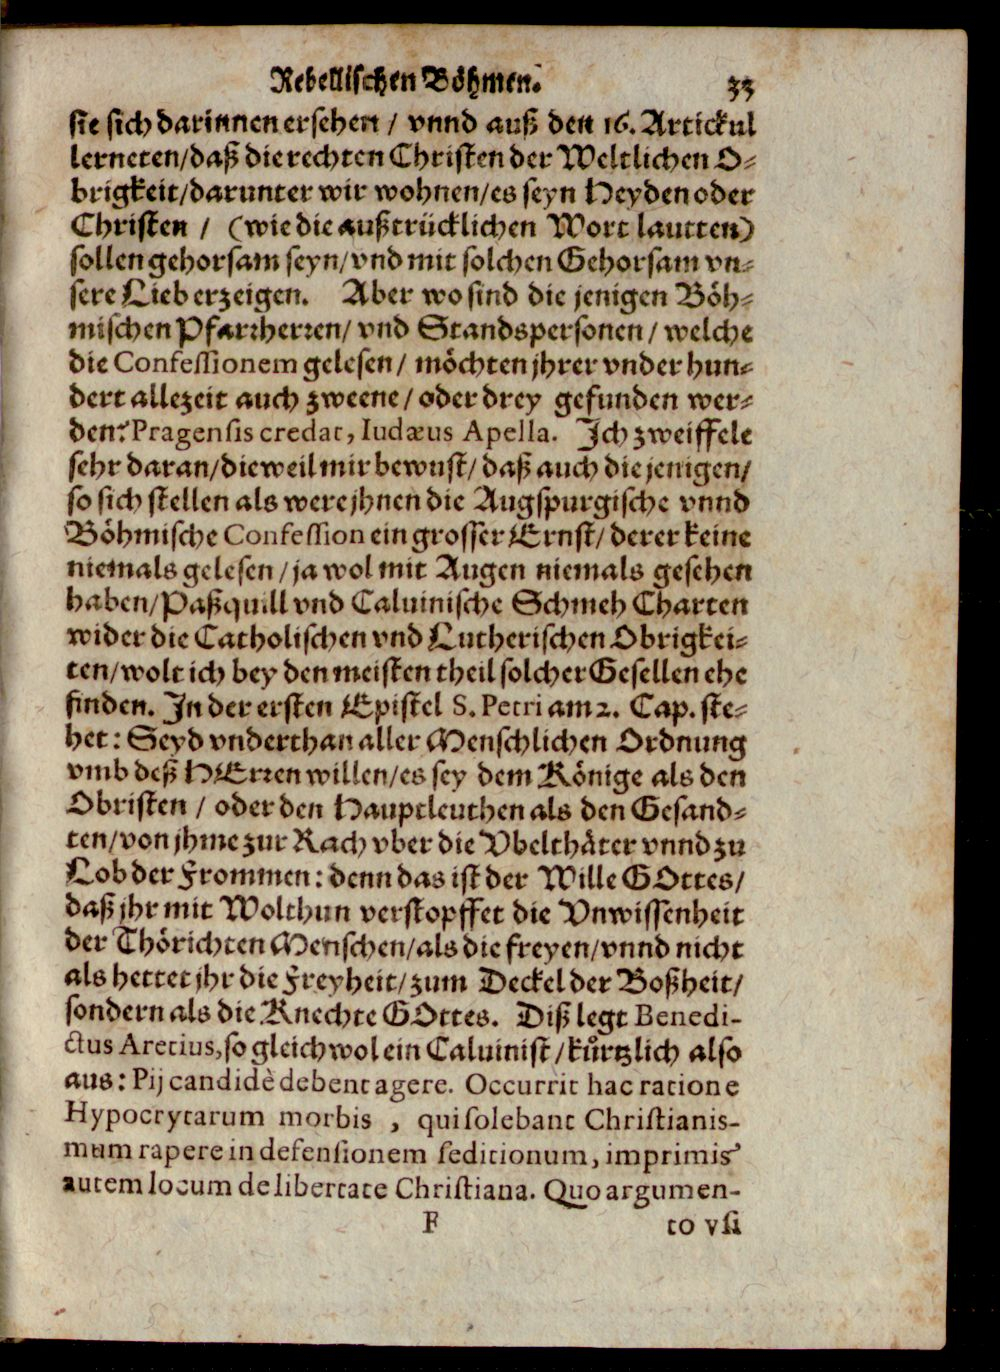 Rebellischen Böhmen. 33
sie sich darinnen ersehen / vnnd auß den 16. Artickul
lerneten/daß die rechten Christen der Weltlichen O-
brigkeit/darunter wir wohnen/es seyn Heyden oder
Christen / (wie die außtrücklichen Wort lautten)
sollen gehorsam seyn/vnd mit solchen Gehorsam vn-
sere Lieb erzeigen. Aber wo sind die jenigen Böh-
mischen Pfarrherren/ vnd Standspersonen / welche
die Confessionem gelesen / möchten jhrer vnder hun-
dert allezeit auch zweene / oder drey gefunden wer-
den? Pragensis credat, Iudæus Apella. Ich zweiffele
sehr daran/dieweil mir bewust/ daß auch die jenigen/
so sich stellen als were jhnen die Augspurgische vnnd
Böhmische Confession ein grosser Ernst/ derer keine
niemals gelesen / ja wol mit Augen niemals gesehen
haben/Paßquill vnd Caluinische Schmeh Charten
wider die Catholischen vnd Lutherischen Obrigkei-
ten/wolt ich bey den meisten theil solcher Gesellen ehe
finden. In der ersten Epistel S. Petri am 2. Cap. ste-
het: Seyd vnderthan aller Menschlichen Ordnung
vmb deß HErren willen/es sey dem Könige als den
Obristen / oder den Hauptleuthen als den Gesand-
ten/von jhme zur Rach vber die Vbelthäter vnnd zu
Lob der Frommen: denn das ist der Wille GOttes/
daß jhr mit Wolthun verstopffet die Vnwissenheit
der Thörichten Menschen/als die freyen/vnnd nicht
als hettet jhr die Freyheit/zum Deckel der Boßheit/
sondern als die Knechte GOttes. Diß legt Benedi-
ctus Aretius, so gleichwol ein Caluinist / kürtzlich also
aus: Pij candidè debent agere. Occurrit hac ratione
Hypocrytarum morbis , qui solebant Christianis-
mum rapere in defensionem seditionum, imprimis
autem locum de libertate Christiana. Quo argumen-
F to vsi